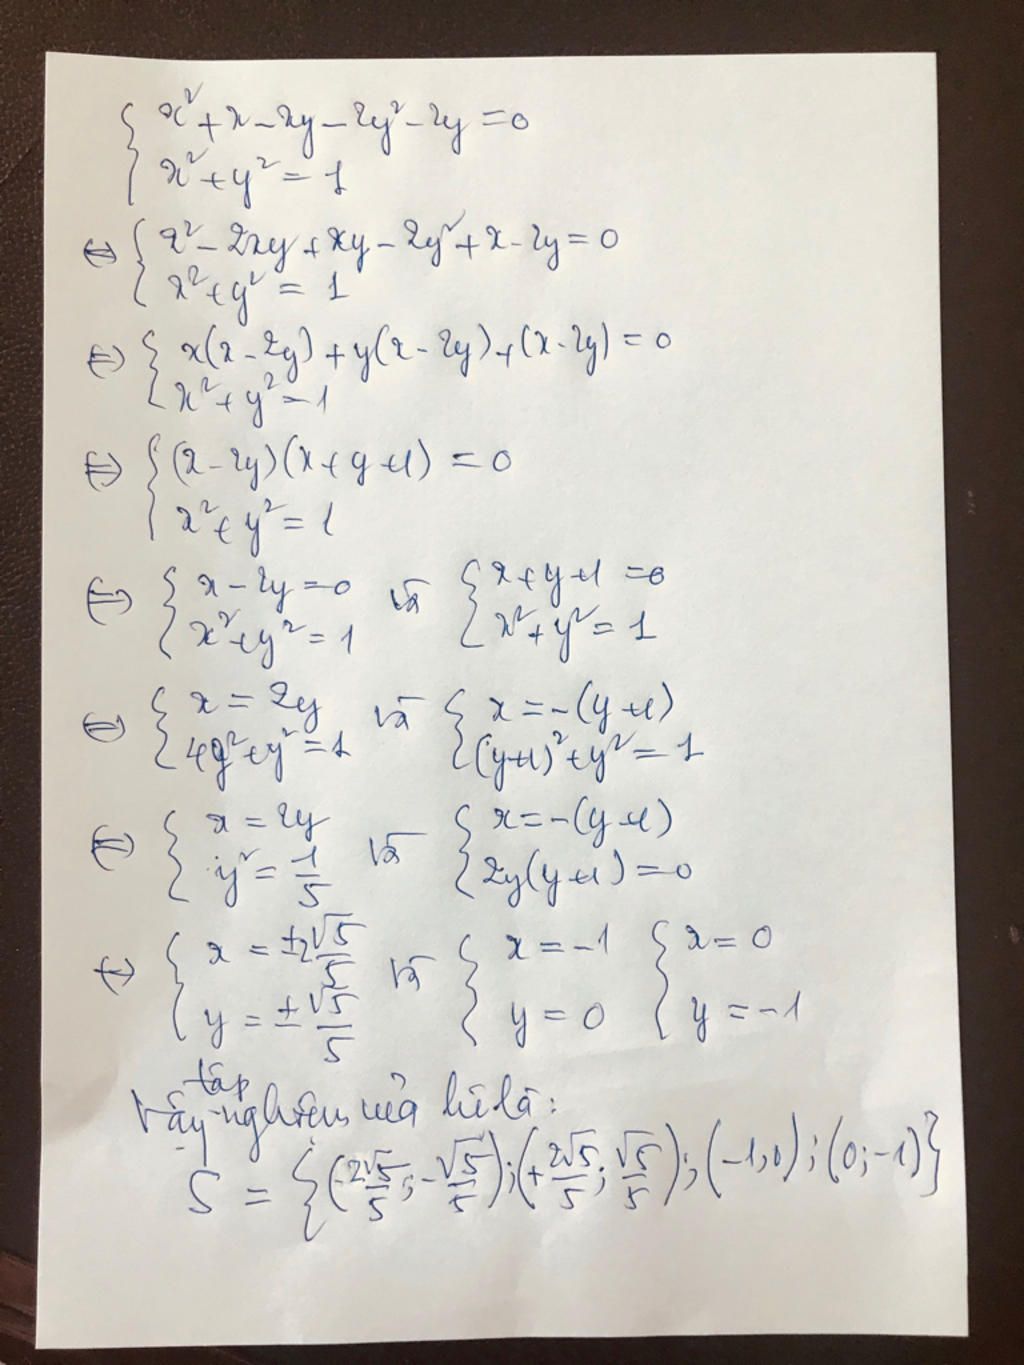 { x² + x - xy - 2y² - 2y = 0
x² + y² = 1
⇔ { x² - 2xy + xy - 2y² + x - 2y = 0
x² + y² = 1
⇔ { x(x - 2y) + y(x - 2y) + (x - 2y) = 0
x² + y² = 1
⇔ { (x - 2y)(x + y + 1) = 0
x² + y² = 1
⇔ { x - 2y = 0 và { x + y + 1 = 0
x² + y² = 1 x² + y² = 1
⇔ { x = 2y và { x = -(y + 1)
4y² + y² = 1 (y+1)² + y² = 1
⇔ { x = 2y và { x = -(y + 1)
y² = 1/5 2y(y + 1) = 0
⇔ { x = ±2√5/5 và { x = -1 { x = 0
y = ±√5/5 y = 0 y = -1
Vậy tập nghiệm của hệ là:
S = {(-2√5/5; -√5/5); (+2√5/5; √5/5); (-1,0); (0;-1)}